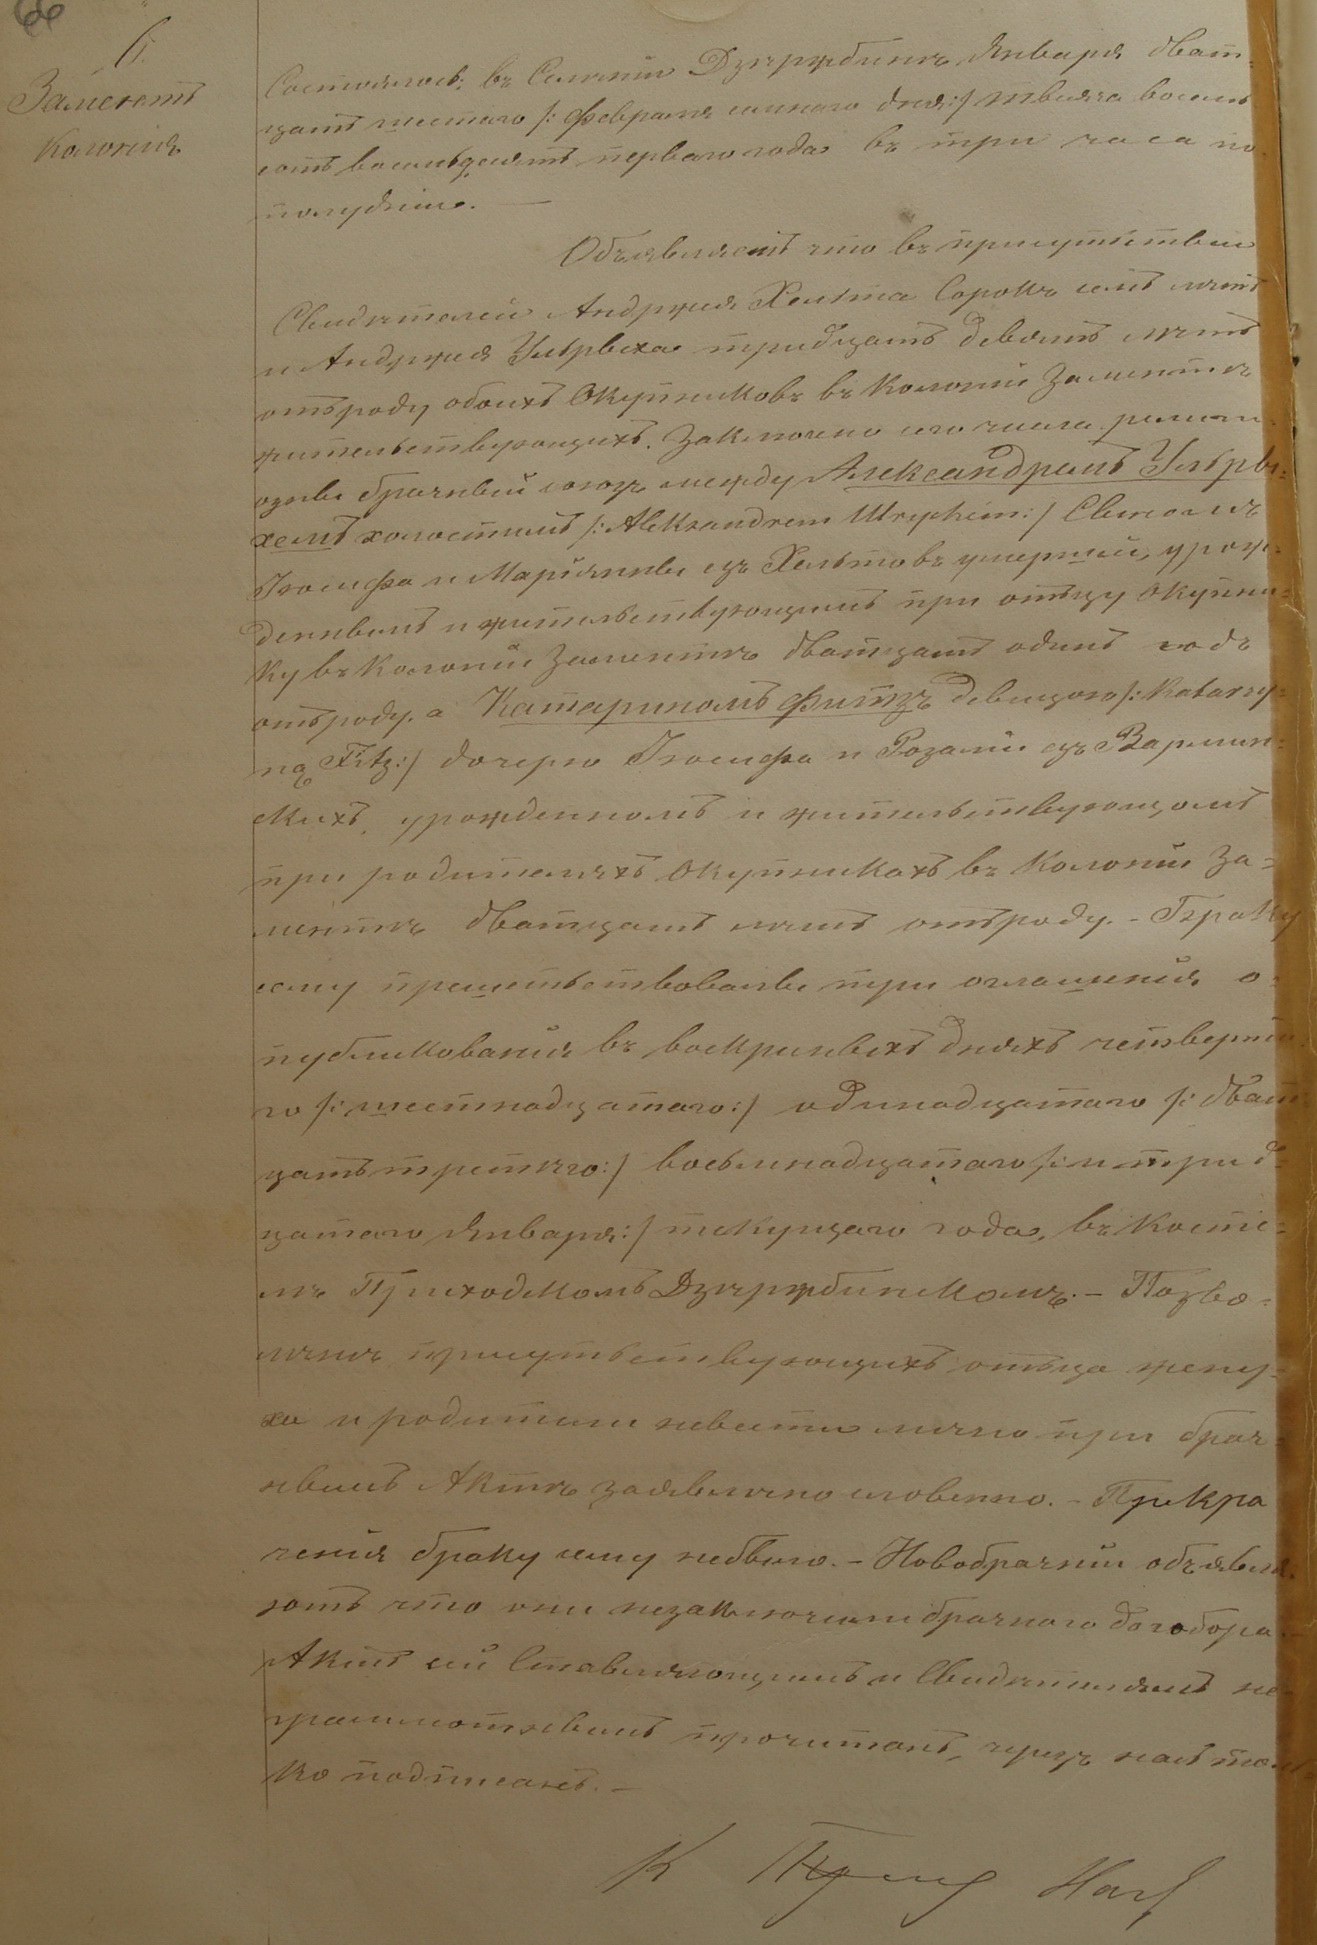 6.
Заментъ
Колонія
Состоялось въ Селеніи Дзержбинъ Января дват=
цать шестаго /: Февраля седмаго дня:/ тысяча восемь
сотъ восемьдесятъ перваго года въ три часа по
полудніи. —
Объявляемъ что въ присутствіи
Свидѣтелей Андржея Хельта Сорокъ семь лѣтъ
и Андржея Ульрыха тридцать девять лѣтъ
отъ роду обоихъ Окупниковъ въ Колоніи Заментѣ
жительствующихъ. Заключено сего числа религи=
озны брачный союзъ между Александромъ Ульры=
хемъ холостымъ /: Aleksandrem Ulrychem:/ Сыномъ
Іосифа и Маріянны изъ Хельтовъ умершей, урож=
деннымъ и жительствующимъ при отцу Окупни=
ку въ Колоніи Заментѣ дватцать одинъ годъ
отъ роду. а Катариномъ Фитзъ девицою /: Katarzy=
ną Fitz:/ дочерю Іосифа и Розаліи изъ Вармин=
скихъ, урожденномъ и жительствующомъ
при родителяхъ Окупникахъ въ Колоніи За=
ментѣ дватцать лѣтъ отъ роду. – Браку
сему прешетьствовалы три оглашенія о=
публикованія въ воскрныхъ дняхъ четверта
го /: шестнадцатаго:/ одинадцатаго /: дват=
цать третяго:/ восьмнадцатаго /: и трид=
цатаго Января:/ текущаго года, въ Косте=
лѣ Приходскомъ Дзержбинскомъ. – Позво=
лѣніе присутьствующихъ отьца жени=
ха и родители невести лично при брач=
нымъ Актѣ заявлѣно словенно. – Прекра
ченія браку сему небыло. – Новобрачніи объявля=
ютъ что они незаключили брачного договора. –
Актъ сей Ставляющимъ и Свидѣтелямъ не
грамотнымъ прочитанъ, черезъ насъ толь=
ко подписанъ. –
К